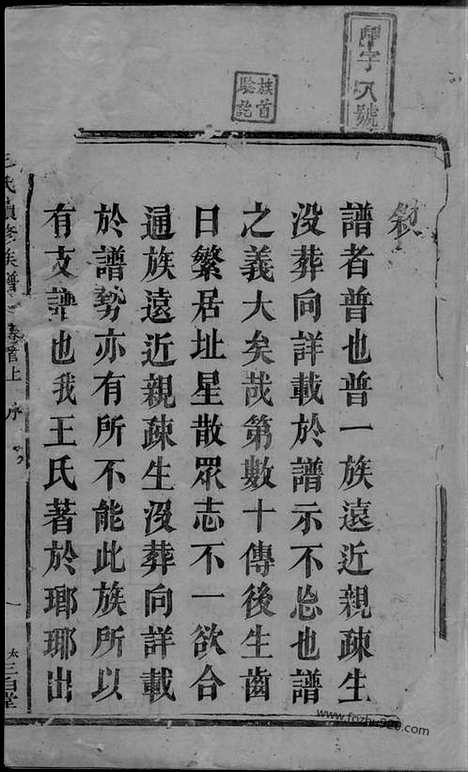 叙
譜者普也普一族遠近親疎生
没葬向詳載於譜示不忩也譜
之義大矣哉第數十傳後生齒
日繁居址星散眾志不一欲合
通族遠近親疎生沒葬向詳載
於譜勢亦有所不能此族所以
有支譜也我王氏著於瑯琊出
王氏續修族譜 卷首上 序 一 太三百堂
字八號
族首
驗訖
www.fozhu920.com